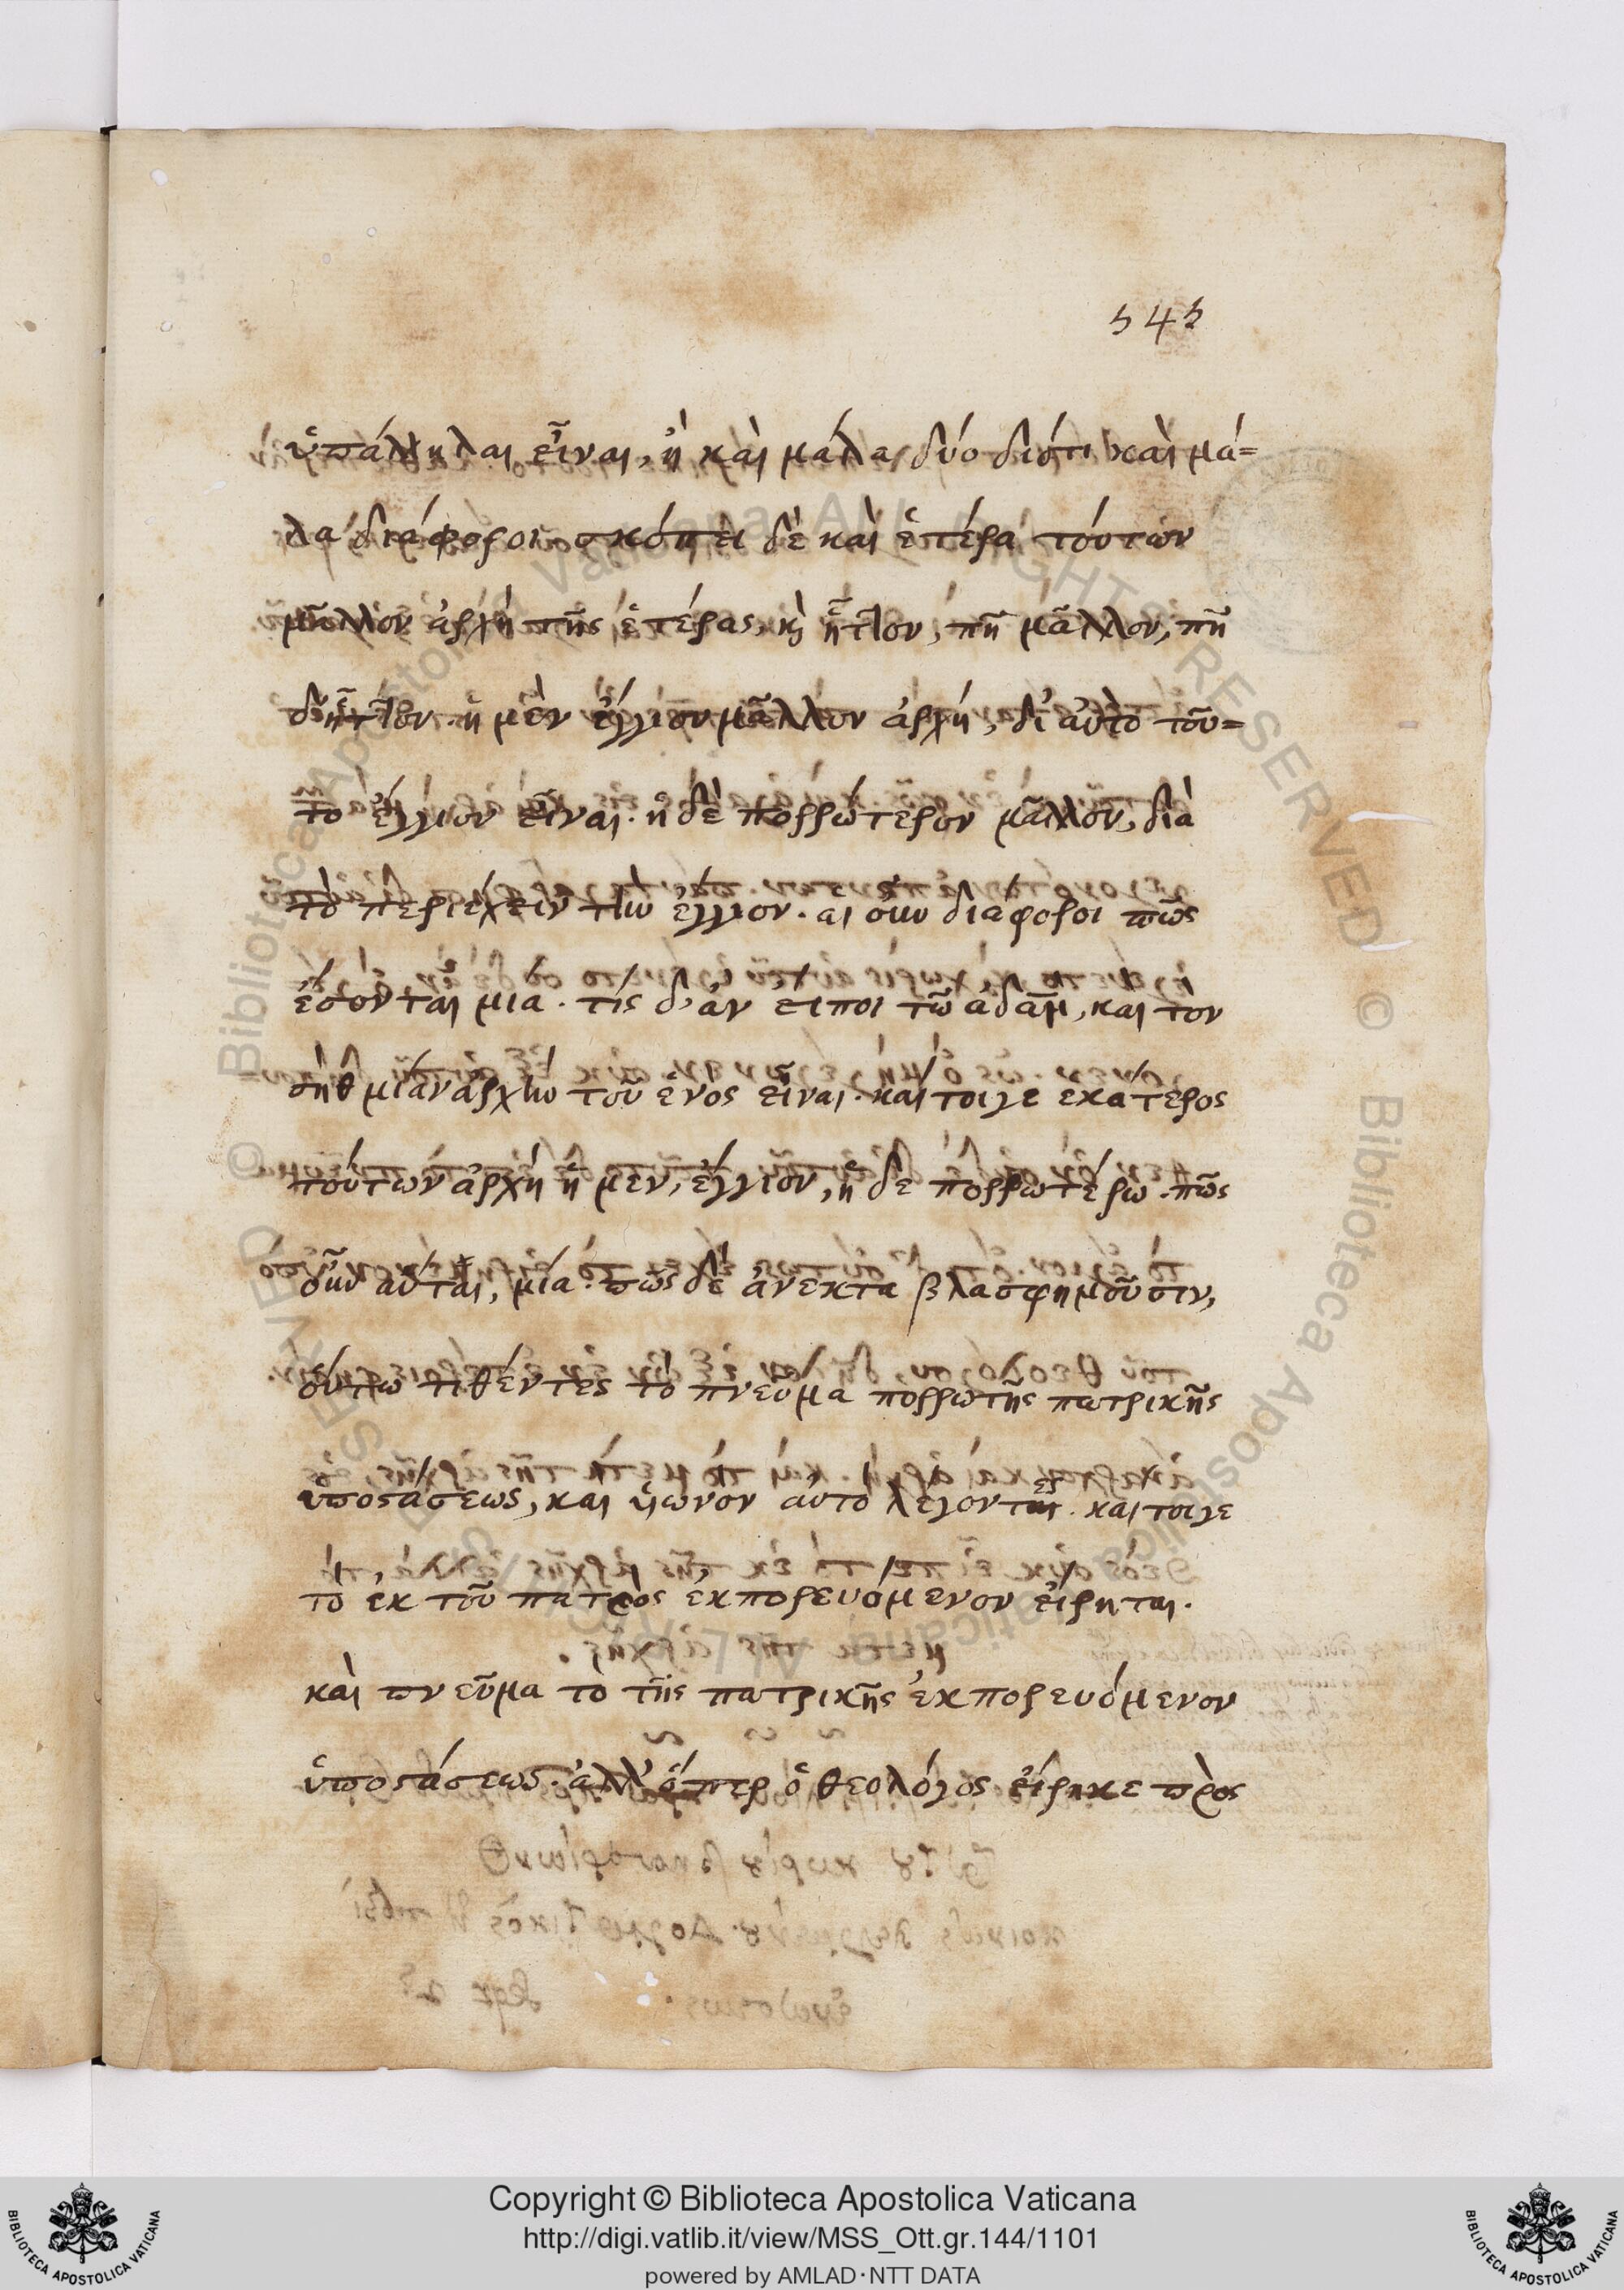 545
ὑπάλληλαι εἶναι, ἢ καὶ μάλα δύο διότι καὶ μά=
λα διάφοροι. σκόπει δὲ καὶ ἑτέρα τούτων
μᾶλλον ἀρχὴ τῆς ἑτέρας, κỳ ἧττον, πῆ μᾶλλον, πῆ
δ' ἧττον. ἡ μὲν ἔγγιον μᾶλλον ἀρχή, δι' αὐτὸ τοῦ=
το ἔγγιον εἶναι. ἡ δὲ πορρώτερον μᾶλλον, διὰ
τὸ περιέχειν τὴν ἔγγιον. αἱ οὖν διάφοροι πῶς
ἔσονται μία. τίς δ' ἂν εἴποι τῶ ἀδὰμ, καὶ τὸν
σὴθ μίαν ἀρχὴν τοῦ ἑνὸς εἶναι. καίτοιγε ἑκάτερος
τούτων ἀρχὴ ἡ μὲν, ἔγγιον, ἡ δὲ πορρωτέρω. πῶς
οὖν αὗται, μία. πῶς δὲ ἀνεκτὰ βλασφημοῦσιν,
οὕτω τιθέντες τὸ πνεῦμα πόρρω τῆς πατρικῆς
ὑποστάσεως, καὶ υἱωνὸν αὐτὸ λέγοντες. καίτοιγε
τὸ ἐκ τοῦ πατρὸς ἐκπορευόμενον εἴρηται.
καὶ πνεῦμα τὸ τῆς πατρικῆς ἐκπορευόμενον
ὑποστάσεως. ἀλλ' ὅπερ ὁ θεολόγος εἴρηκε πρὸς
© Biblioteca Apostolica Vaticana ALL RIGHTS RESERVED
BIBLIOTECA APOSTOLICA VATICANA
Copyright © Biblioteca Apostolica Vaticana
http://digi.vatlib.it/view/MSS_Ott.gr.144/1101
powered by AMLAD·NTT DATA
BIBLIOTECA APOSTOLICA VATICANA